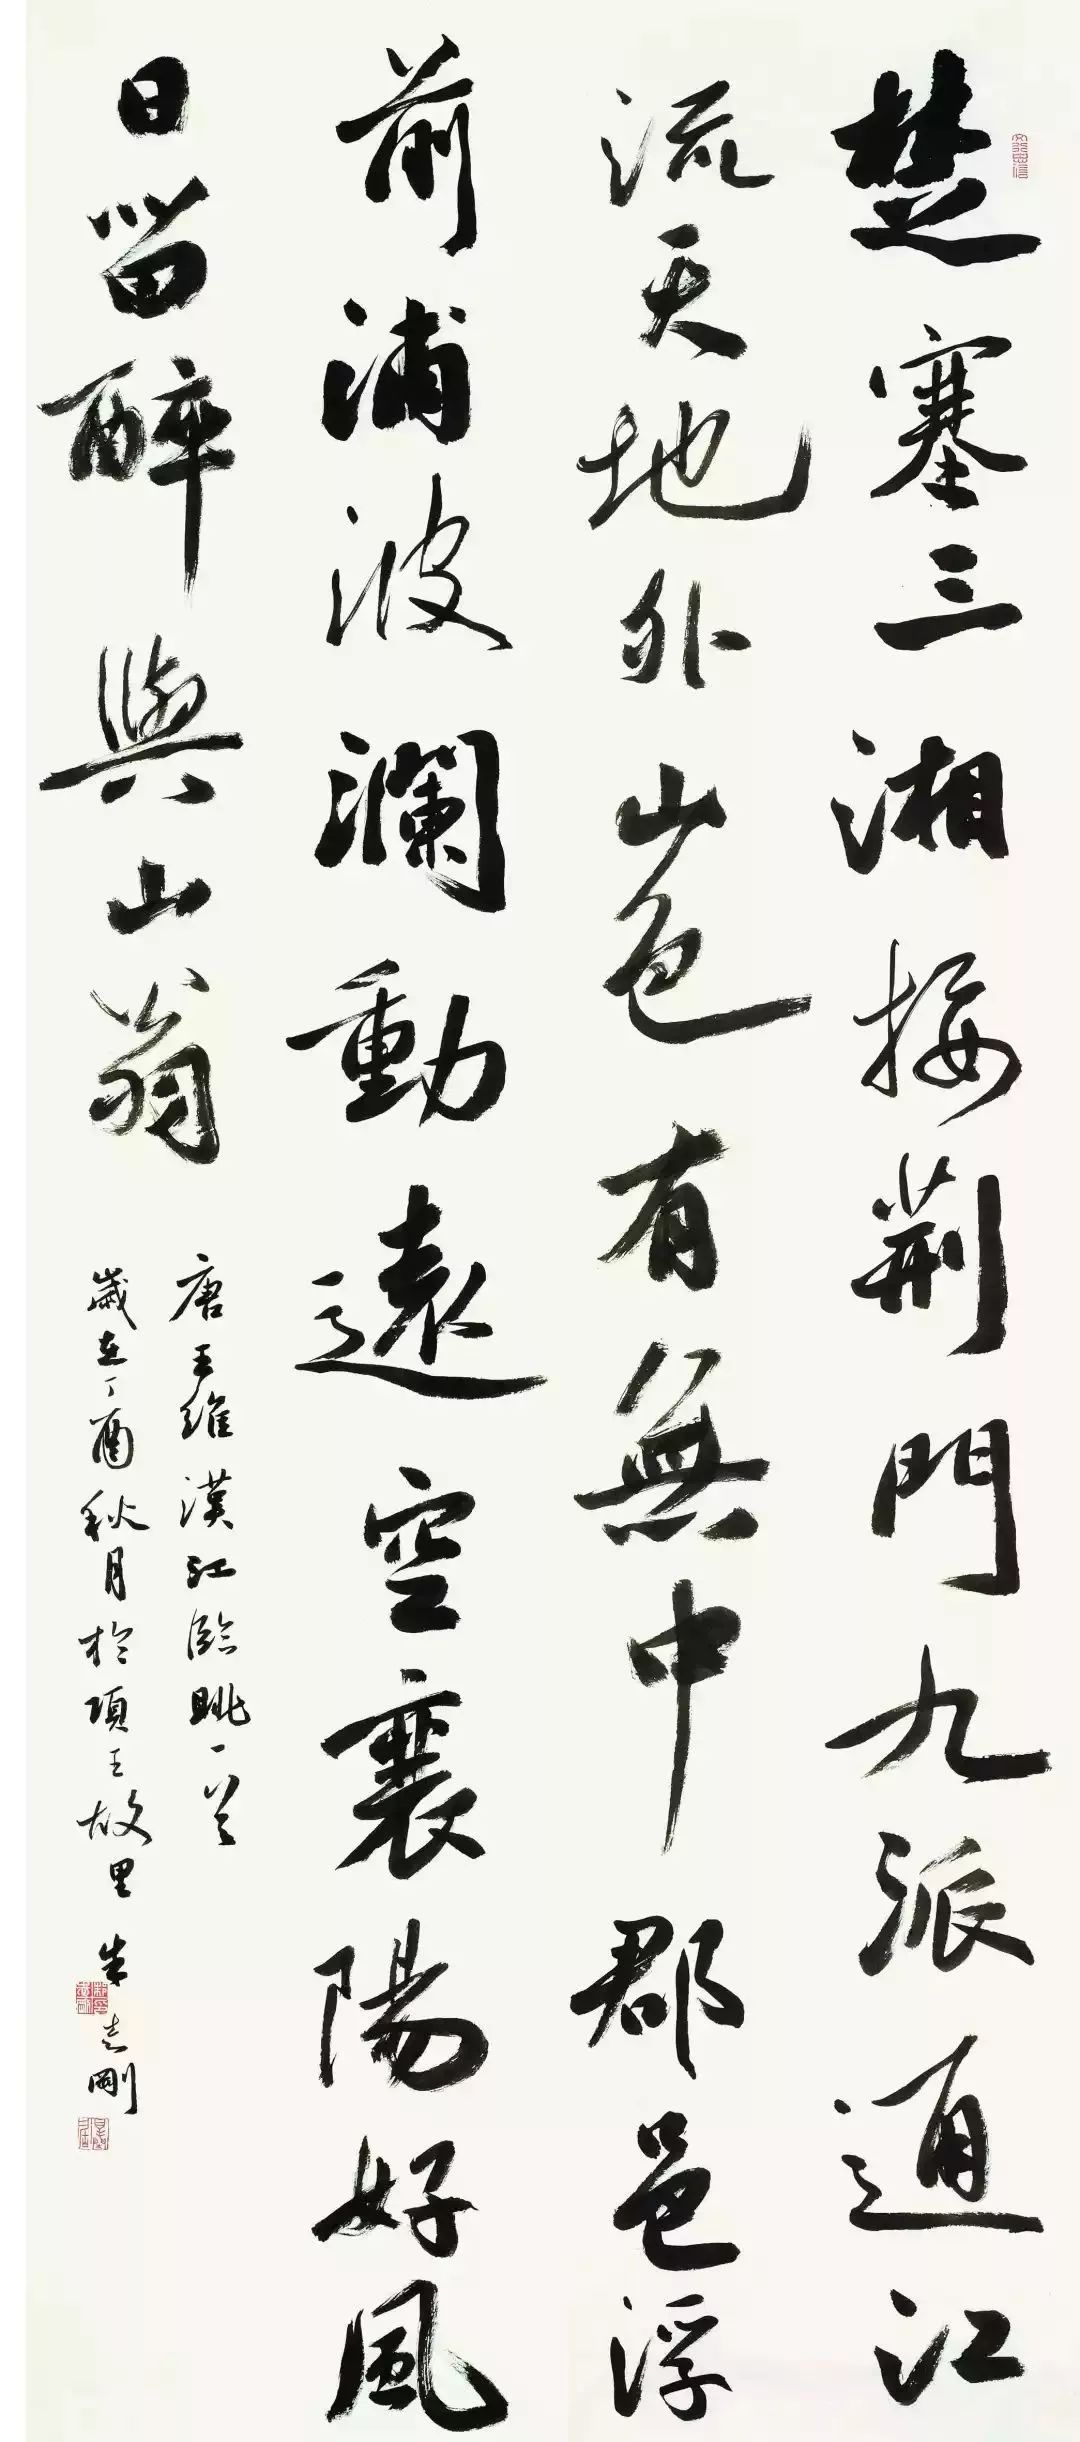 楚塞三湘接荆門九派通江
流天地外山色有無中郡邑浮
前浦波瀾動遠空襄陽好風
日留醉與山翁
唐王維漢江臨眺一首
歲在丁酉秋月於項王故里
朱志剛